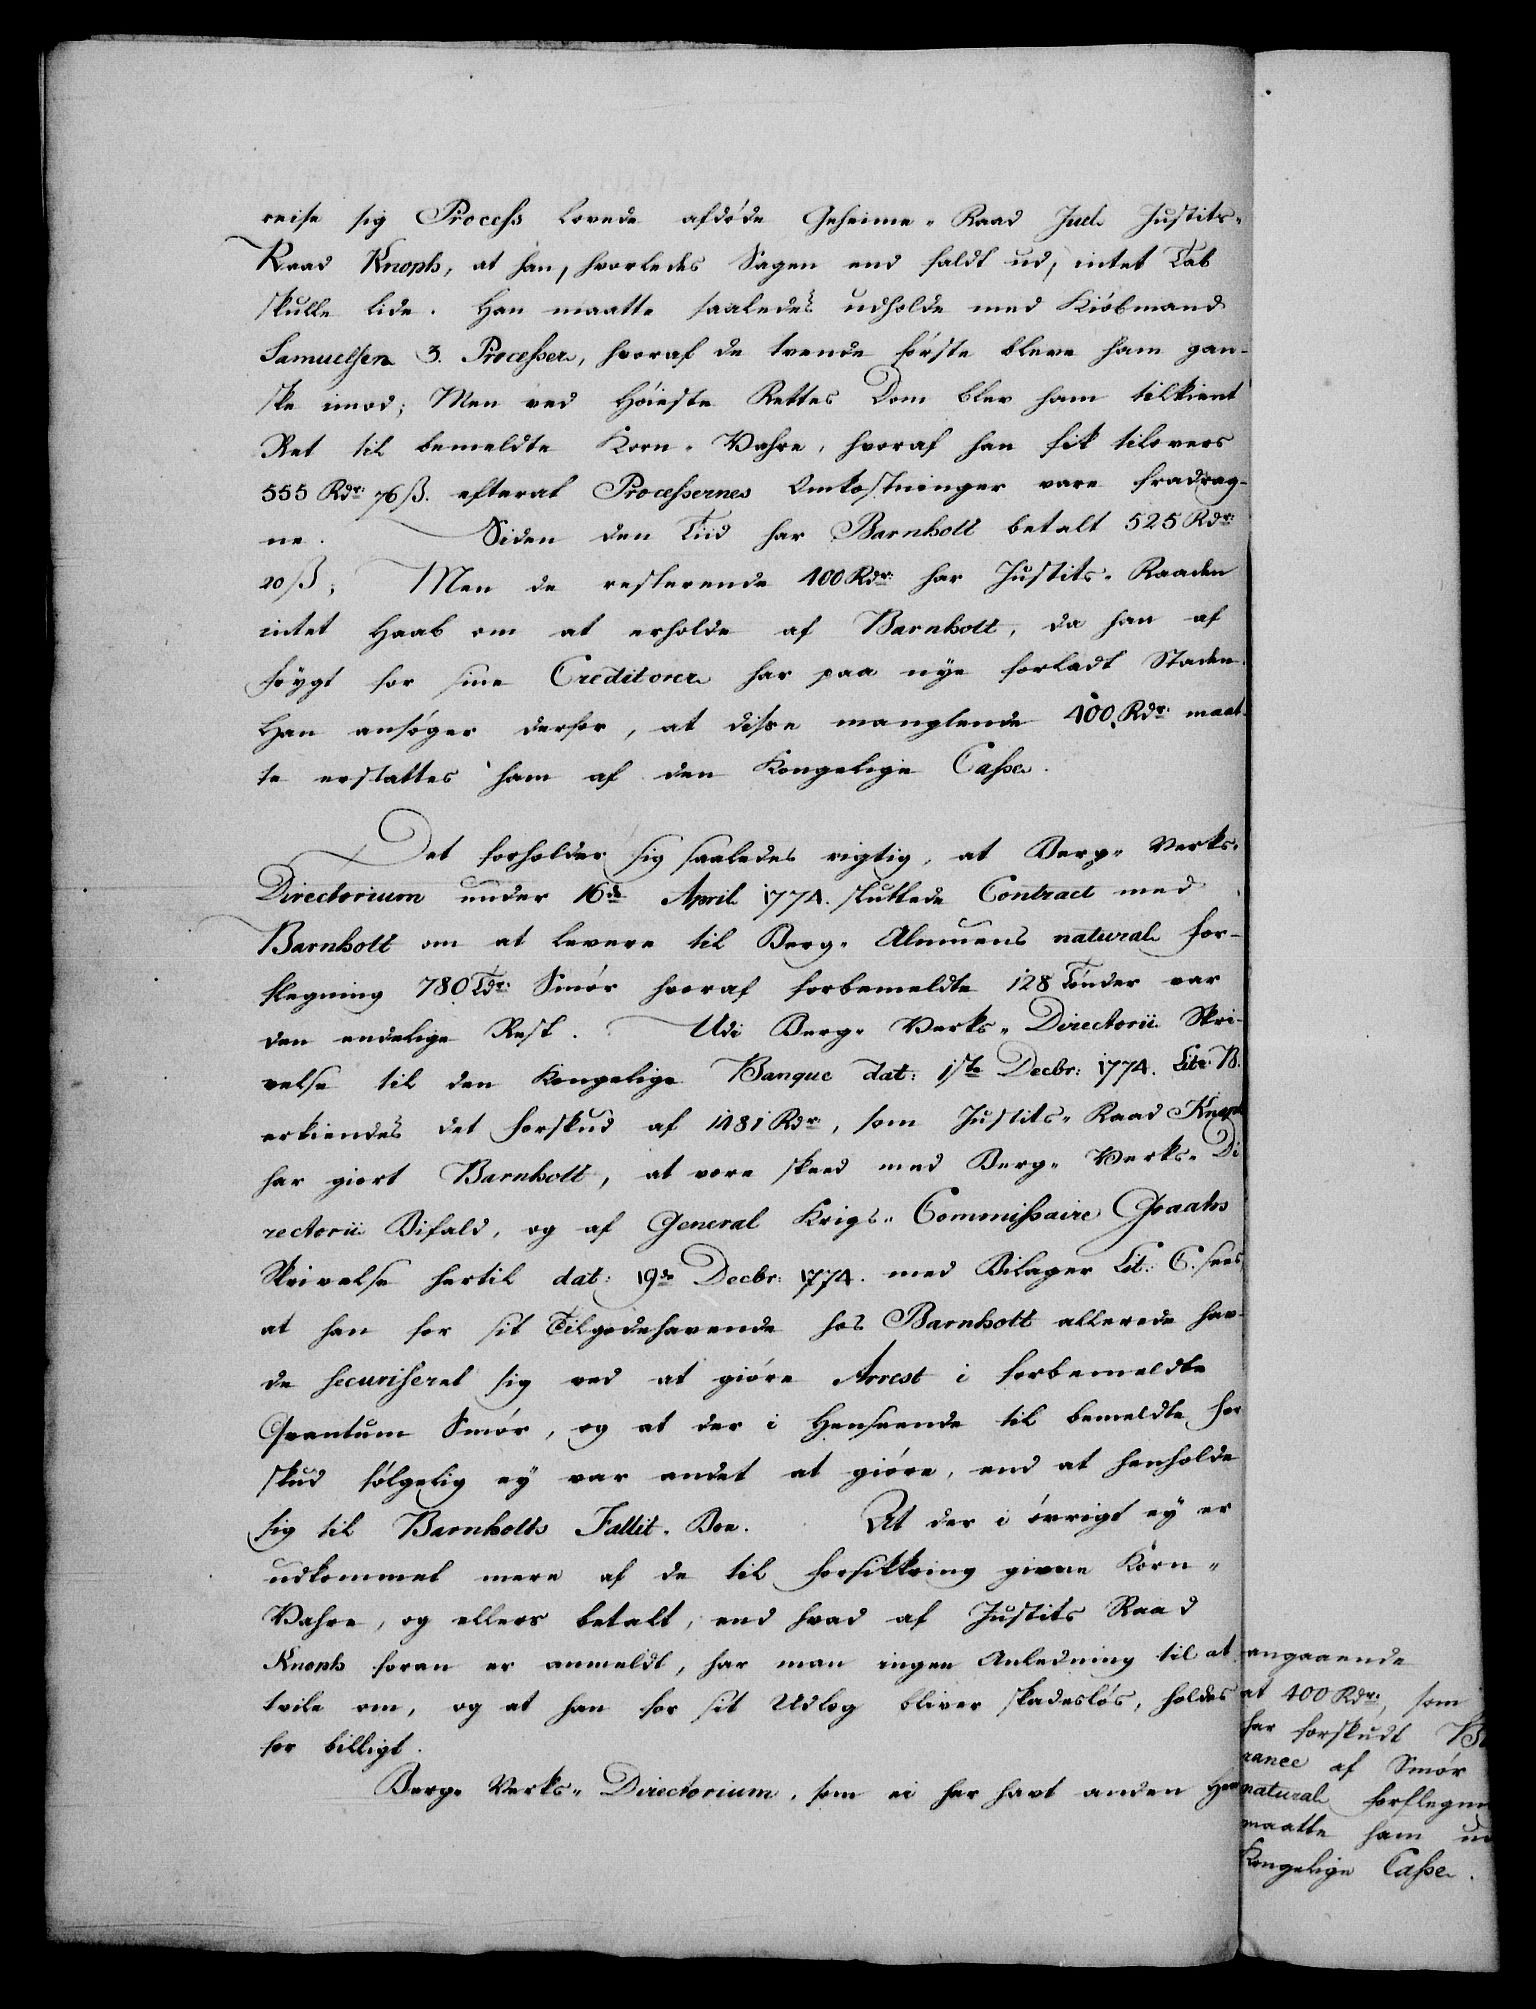 reise sig Process lovede afdøde Geheime-Raad Juel Justits-
Raad Knoph, at han, hvorledes Sagen end faldt ud, intet Tab
skulle lide. Han maatte saaledes udholde med Kiøbmand
Samuelsen 3. Processer, hvoraf de tvende første bleve ham gan-
ske imod; Men ved Høieste Rettes Dom blev ham tilkient
Ret til bemeldte Korn-Vahre, hvoraf han fik tilovers
555 Rdr: 76 ß. efterat Processernes Omkostninger vare fradrag-
ne. Siden den Tiid har Barnholt betalt 525 Rdr:
20 ß; Men de resterende 400 Rdr: har Justits-Raaden
intet Haab om at erholde af Barnholt, da han af
frygt for sine Creditorer har paa nye forladt Staden.
Han ansøger derfor, at disse manglende 400 Rdr: maat-
te erstattes ham af den Kongelige Casse.
Det forholder sig saaledes rigtig, at Berg-Verks-
Directorium under 16de April 1774. sluttede Contract med
Barnholt om at levere til Berg-Almuens natural for-
flegning 780 Tdr: Smør hvoraf forbemeldte 128 Tønder var
den endelige Rest. Udi Berg-Verks-Directorii Skri-
velse til den Kongelige Banque dat: 1ste Decbr: 1774. Litr. B.
erkiendes det forskud af 1481 Rdr:, som Justits-Raad Knoph
har giort Barnholt, at vere skeed med Berg-Verks-Di
rectorii Bifald, og af General Krigs-Commissaire Graahs
Skrivelse hertil dat: 19de Decbr: 1774. med Bilager Lit: C. sees
at han for sit Tilgodehavende hos Barnholt allerede hav-
de securiseret sig ved at giøre Arrest i forbemeldte
Qvantum Smør, og at der i Henseende til bemeldte for
skud følgelig ey var andet at giøre, end at henholde
sig til Barnholts Fallit-Boe. At der i øvrigt ey er
udkommet mere af de til forsikkring givne Korn-
Vahre, og ellers betalt, end hvad af Justits Raad
Knoph foran er anmeldt, har man ingen Anledning til at
tvile om, og at han for sit Udlæg bliver skadesløs, holdes
for billigt.
Berg-Verks-Directorium, som ei har havt anden
angaaende
at 400 Rdr:, som
har forskudt
rance af Smør
natural forflegni
maatte ham
Kongelige Casse.